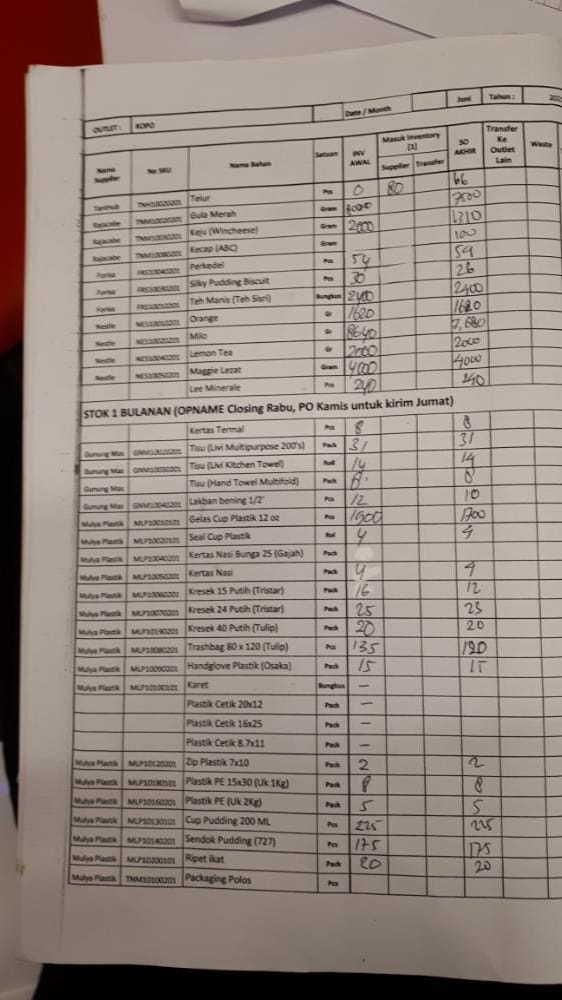 OUTLET : KOPO Date / Month Juni Tahun :
Nama Supplier No SKU Nama Bahan Satuan INV AWAL Masuk Inventory [1] Supplier Transfer SO AKHIR Transfer Ke Outlet Lain Waste
Telur Pcs 0 80 66
Gula Merah Gram 7500
Rajacabe Keju (Wincheese) Gram 2000 1310
Rajacabe Kecap (ABC) Gram 100
Rajacabe Perkedel Pcs 54 54
Forisa Silky Pudding Biscuit Pcs 30 26
Forisa Teh Manis (Teh Sisri) Bungkus 2400 2400
Orange Gr 1620 1620
Nestle NES10010201 Milo Gr 8640 7,680
Nestle NES10020201 Lemon Tea Gr 2000 2000
Nestle NES10040201 Maggie Lezat Gram 4000 4000
Nestle NES10050201 Lee Minerale Pcs 240 240
STOK 1 BULANAN (OPNAME Closing Rabu, PO Kamis untuk kirim Jumat)
Kertas Termal Pcs 8 8
Gunung Mas GNM10020201 Tisu (Livi Multipurpose 200's) Pack 31 31
Gunung Mas GNM10030201 Tisu (Livi Kitchen Towel) Roll 14 14
Gunung Mas Tisu (Hand Towel Multifold) Pack 8 8
Gunung Mas GNM10040201 Lakban bening 1/2' Pcs 12 10
Mulya Plastik MLP10010101 Gelas Cup Plastik 12 oz Pcs 1900 1700
Mulya Plastik MLP10020101 Seal Cup Plastik Rol 4 4
Mulya Plastik MLP10040201 Kertas Nasi Bunga 25 (Gajah) Pack
Mulya Plastik MLP10050201 Kertas Nasi Pack 4 4
Mulya Plastik MLP10060201 Kresek 15 Putih (Tristar) Pack 16 12
Mulya Plastik MLP10070201 Kresek 24 Putih (Tristar) Pack 25 23
Mulya Plastik MLP10190201 Kresek 40 Putih (Tulip) Pack 20 20
Mulya Plastik MLP10080201 Trashbag 80 x 120 (Tulip) Pcs 135 120
Mulya Plastik MLP10090201 Handglove Plastik (Osaka) Pack 15 15
Mulya Plastik MLP10100101 Karet Bungkus —
Plastik Cetik 20x12 Pack —
Plastik Cetik 16x25 Pack —
Plastik Cetik 8.7x11 Pack —
Mulya Plastik MLP10120201 Zip Plastik 7x10 Pack 2 2
Mulya Plastik MLP10180101 Plastik PE 15x30 (Uk 1Kg) Pack 8 8
Mulya Plastik MLP10160201 Plastik PE (Uk 2Kg) Pack 5 5
Mulya Plastik MLP10130101 Cup Pudding 200 ML Pcs 225 225
Mulya Plastik MLP10140201 Sendok Pudding (727) Pcs 175 175
Mulya Plastik MLP10200101 Ripet ikat Pack 20 20
Mulya Plastik TNM10100201 Packaging Polos Pcs